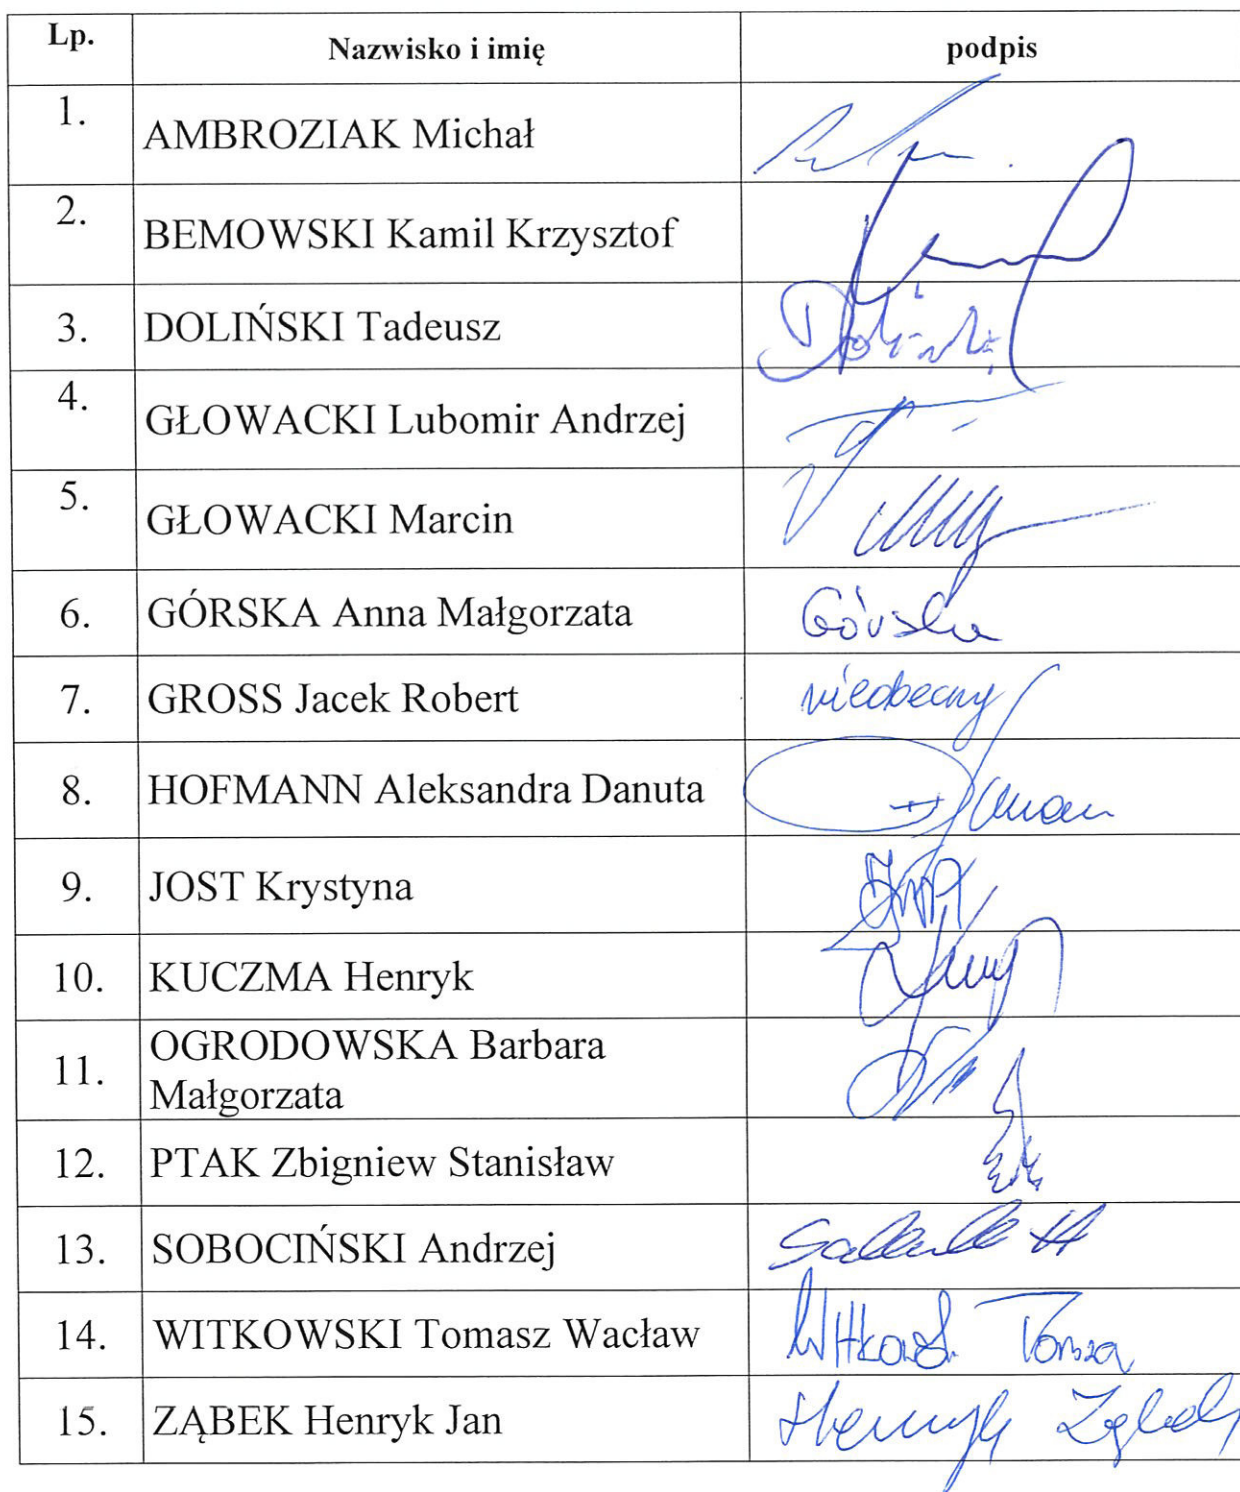 Lp. Nazwisko i imię podpis
1. AMBROZIAK Michał
2. BEMOWSKI Kamil Krzysztof
3. DOLIŃSKI Tadeusz
4. GŁOWACKI Lubomir Andrzej
5. GŁOWACKI Marcin
6. GÓRSKA Anna Małgorzata Górska
7. GROSS Jacek Robert nieobecny
8. HOFMANN Aleksandra Danuta
9. JOST Krystyna
10. KUCZMA Henryk
11. OGRODOWSKA Barbara
Małgorzata
12. PTAK Zbigniew Stanisław
13. SOBOCIŃSKI Andrzej
14. WITKOWSKI Tomasz Wacław
15. ZĄBEK Henryk Jan Henryk